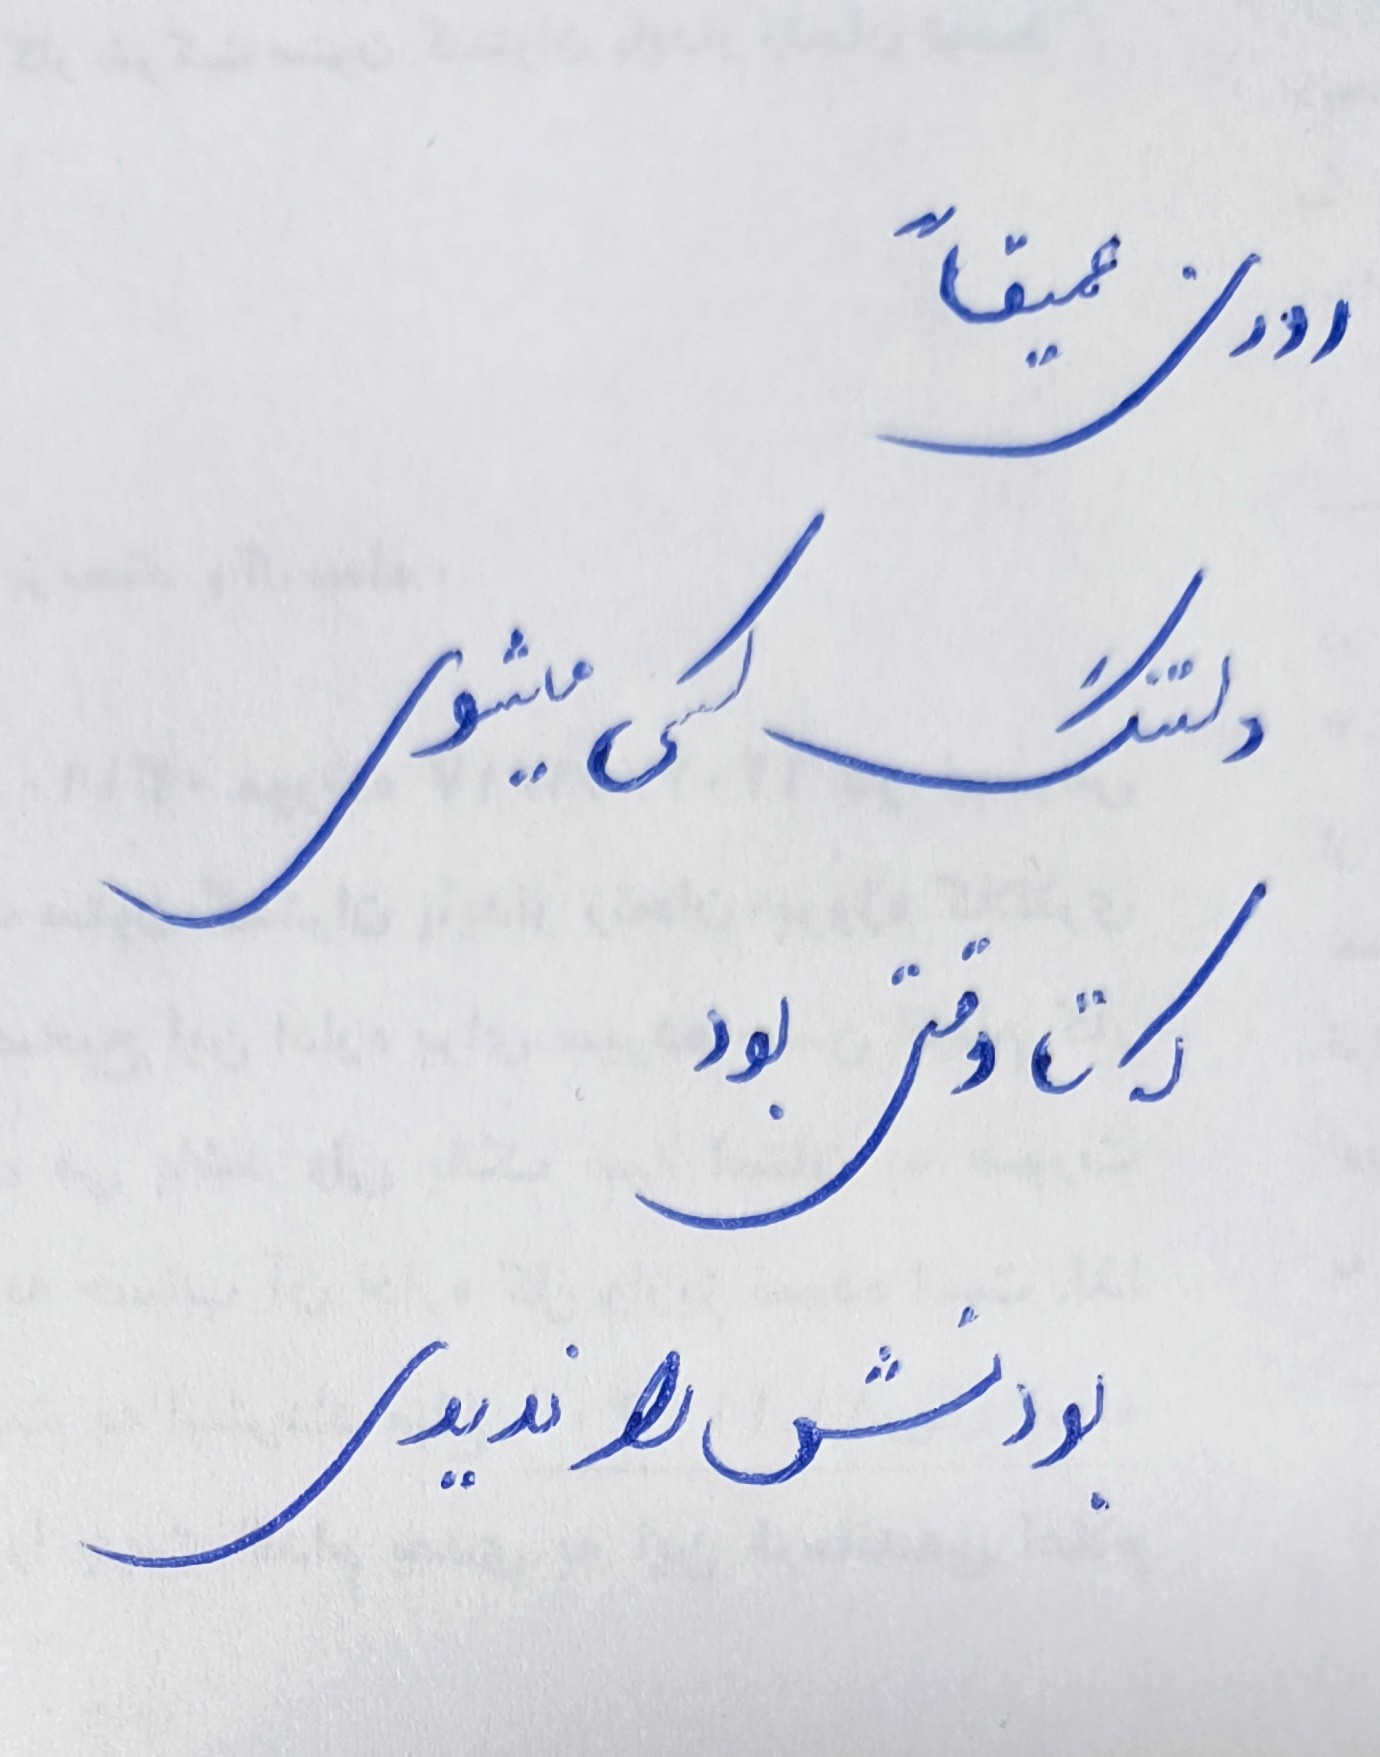 روزی عمیقاً
دلتنگ کسی میشوی
که تا وقتی بود
بودنش را ندیدی